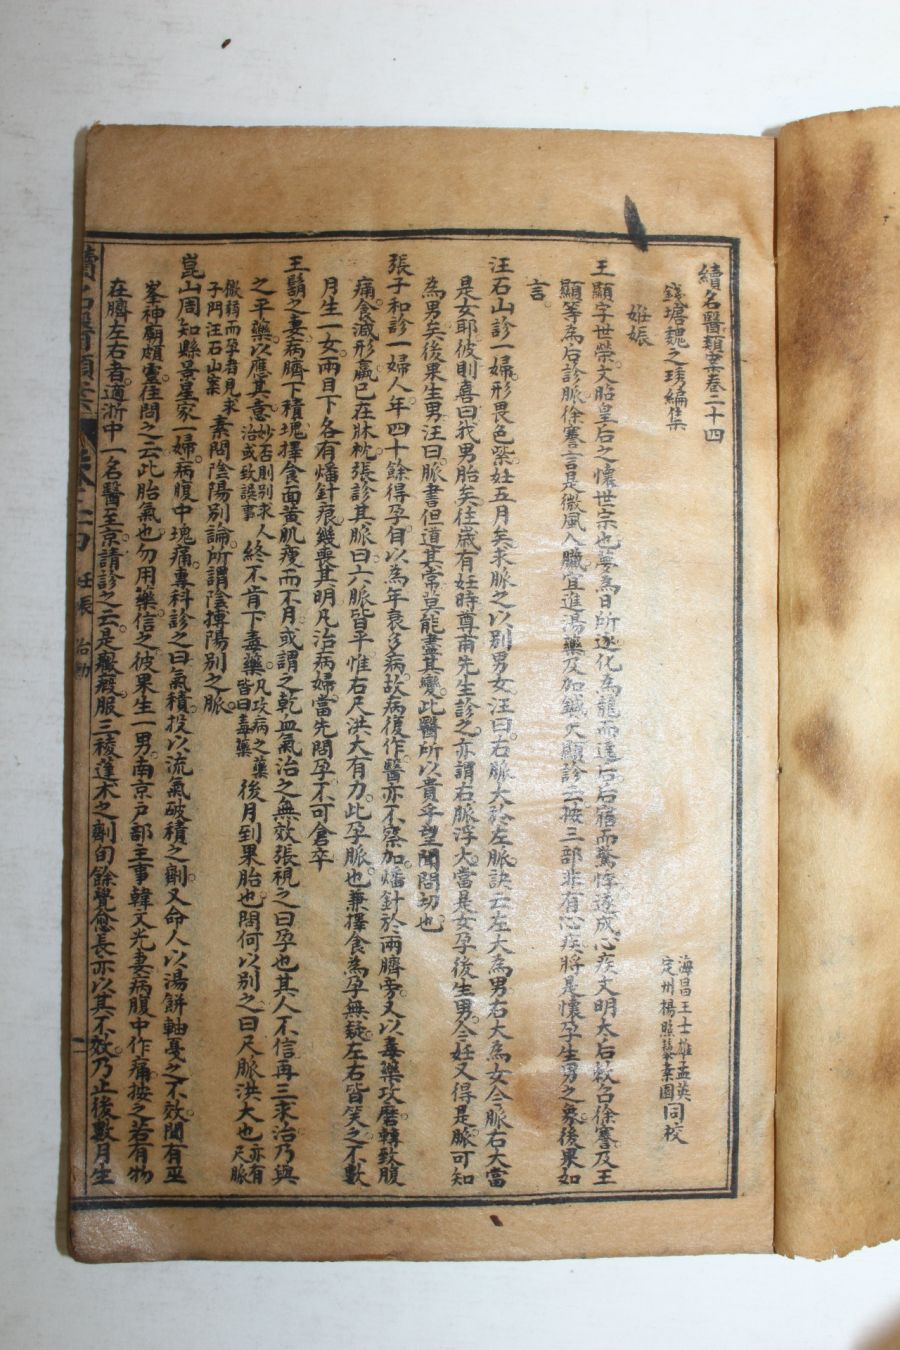 續名醫類案卷二十四
錢塘魏之琇編集
海昌王士雄孟英
定州楊照藜素園同校
妊娠
王顯字世榮文昭皇后之懷世宗也夢為日所逐化為龍而遶后后寤而驚悸遂成心疾文明太后敕召徐謇及王
顯等為后診脈徐謇言是微風入臟宜進湯藥及加鍼灸顯診云按三部非有心疾將是懷孕生男之象後果如
言
汪石山診一婦形畏色紫妊五月矣求脈之以別男女汪曰右脈大於左脈訣云左大為男右大為女今脈右大當
是女耶彼則喜曰我男胎矣往歲有妊時尊甫先生診之亦謂右脈浮大當是女孕後生男今妊又得是脈可知
為男矣後果生男汪曰脈書但道其常莫能盡其變此醫所以貴乎望聞問切也
張子和診一婦人年四十餘得孕自以為年衰多病故病復作醫亦不察加燔針於兩臍旁又以毒藥攻磨轉致腹
痛食減形羸已在牀枕張診其脈曰六脈皆平惟右尺洪大有力此孕脈也兼擇食為孕無疑左右皆笑之不數
月生一女兩目下各有燔針痕幾喪其明凡治病婦當先問孕不可倉卒
王鬍之妻病臍下積塊擇食面黃肌瘦而不月或謂之乾血氣治之無效張視之曰孕也其人不信再三求治乃與
之平藥以應其意妙否則別求人治或致誤事終不肯下毒藥凡攻病之藥皆曰毒藥後月到果胎也問何以別之曰尺脈洪大也亦有尺脈
微弱而孕者見朱子門汪石山案素問陰陽別論所謂陰搏陽別之脈
崑山周知縣景星家一婦病腹中塊痛專科診之曰氣積投以流氣破積之劑又命人以湯餅軸憂之不效聞有巫
峯神廟頗靈往問之云此胎氣也勿用藥信之彼果生一男南京戶部主事韓文光妻病腹中作痛按之若有物
在臍左右者適浙中一名醫至京請診之云是癥瘕服三稜蓬朮之劑旬餘覺愈長亦以其不效乃止後數月生